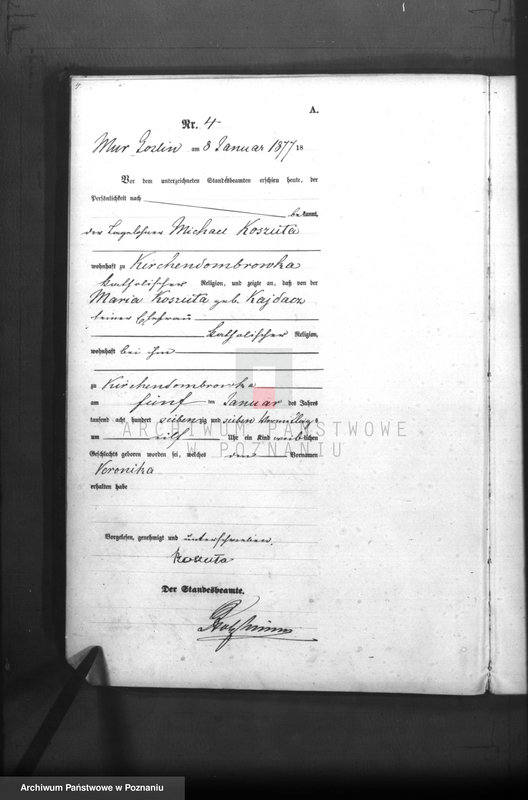 4
A.
Nr. 4
Mur. Goslin am 8 Januar 1877 18
Vor dem unterzeichneten Standesbeamten erschien heute, der
Persönlichkeit nach
bekannt,
der Tagelöhner Michael Koszuta
wohnhaft zu Kirchendombrowka
katholischer Religion, und zeigte an, daß von der
Maria Koszuta geb. Kajdacz
seiner Ehefrau
katholischer Religion,
wohnhaft bei ihm
zu Kirchendombrowka
am fünf ten Januar des Jahres
tausend acht hundert sieben zig und sieben Vormittags
um eilf Uhr ein Kind weiblichen
Geschlechts geboren worden sei, welches den Vornamen
Veronika
erhalten habe
Vorgelesen, genehmigt und unterschrieben.
Koszuta
Der Standesbeamte.
ARCHIWUM PAŃSTWOWE
W POZNANIU
Archiwum Państwowe w Poznaniu